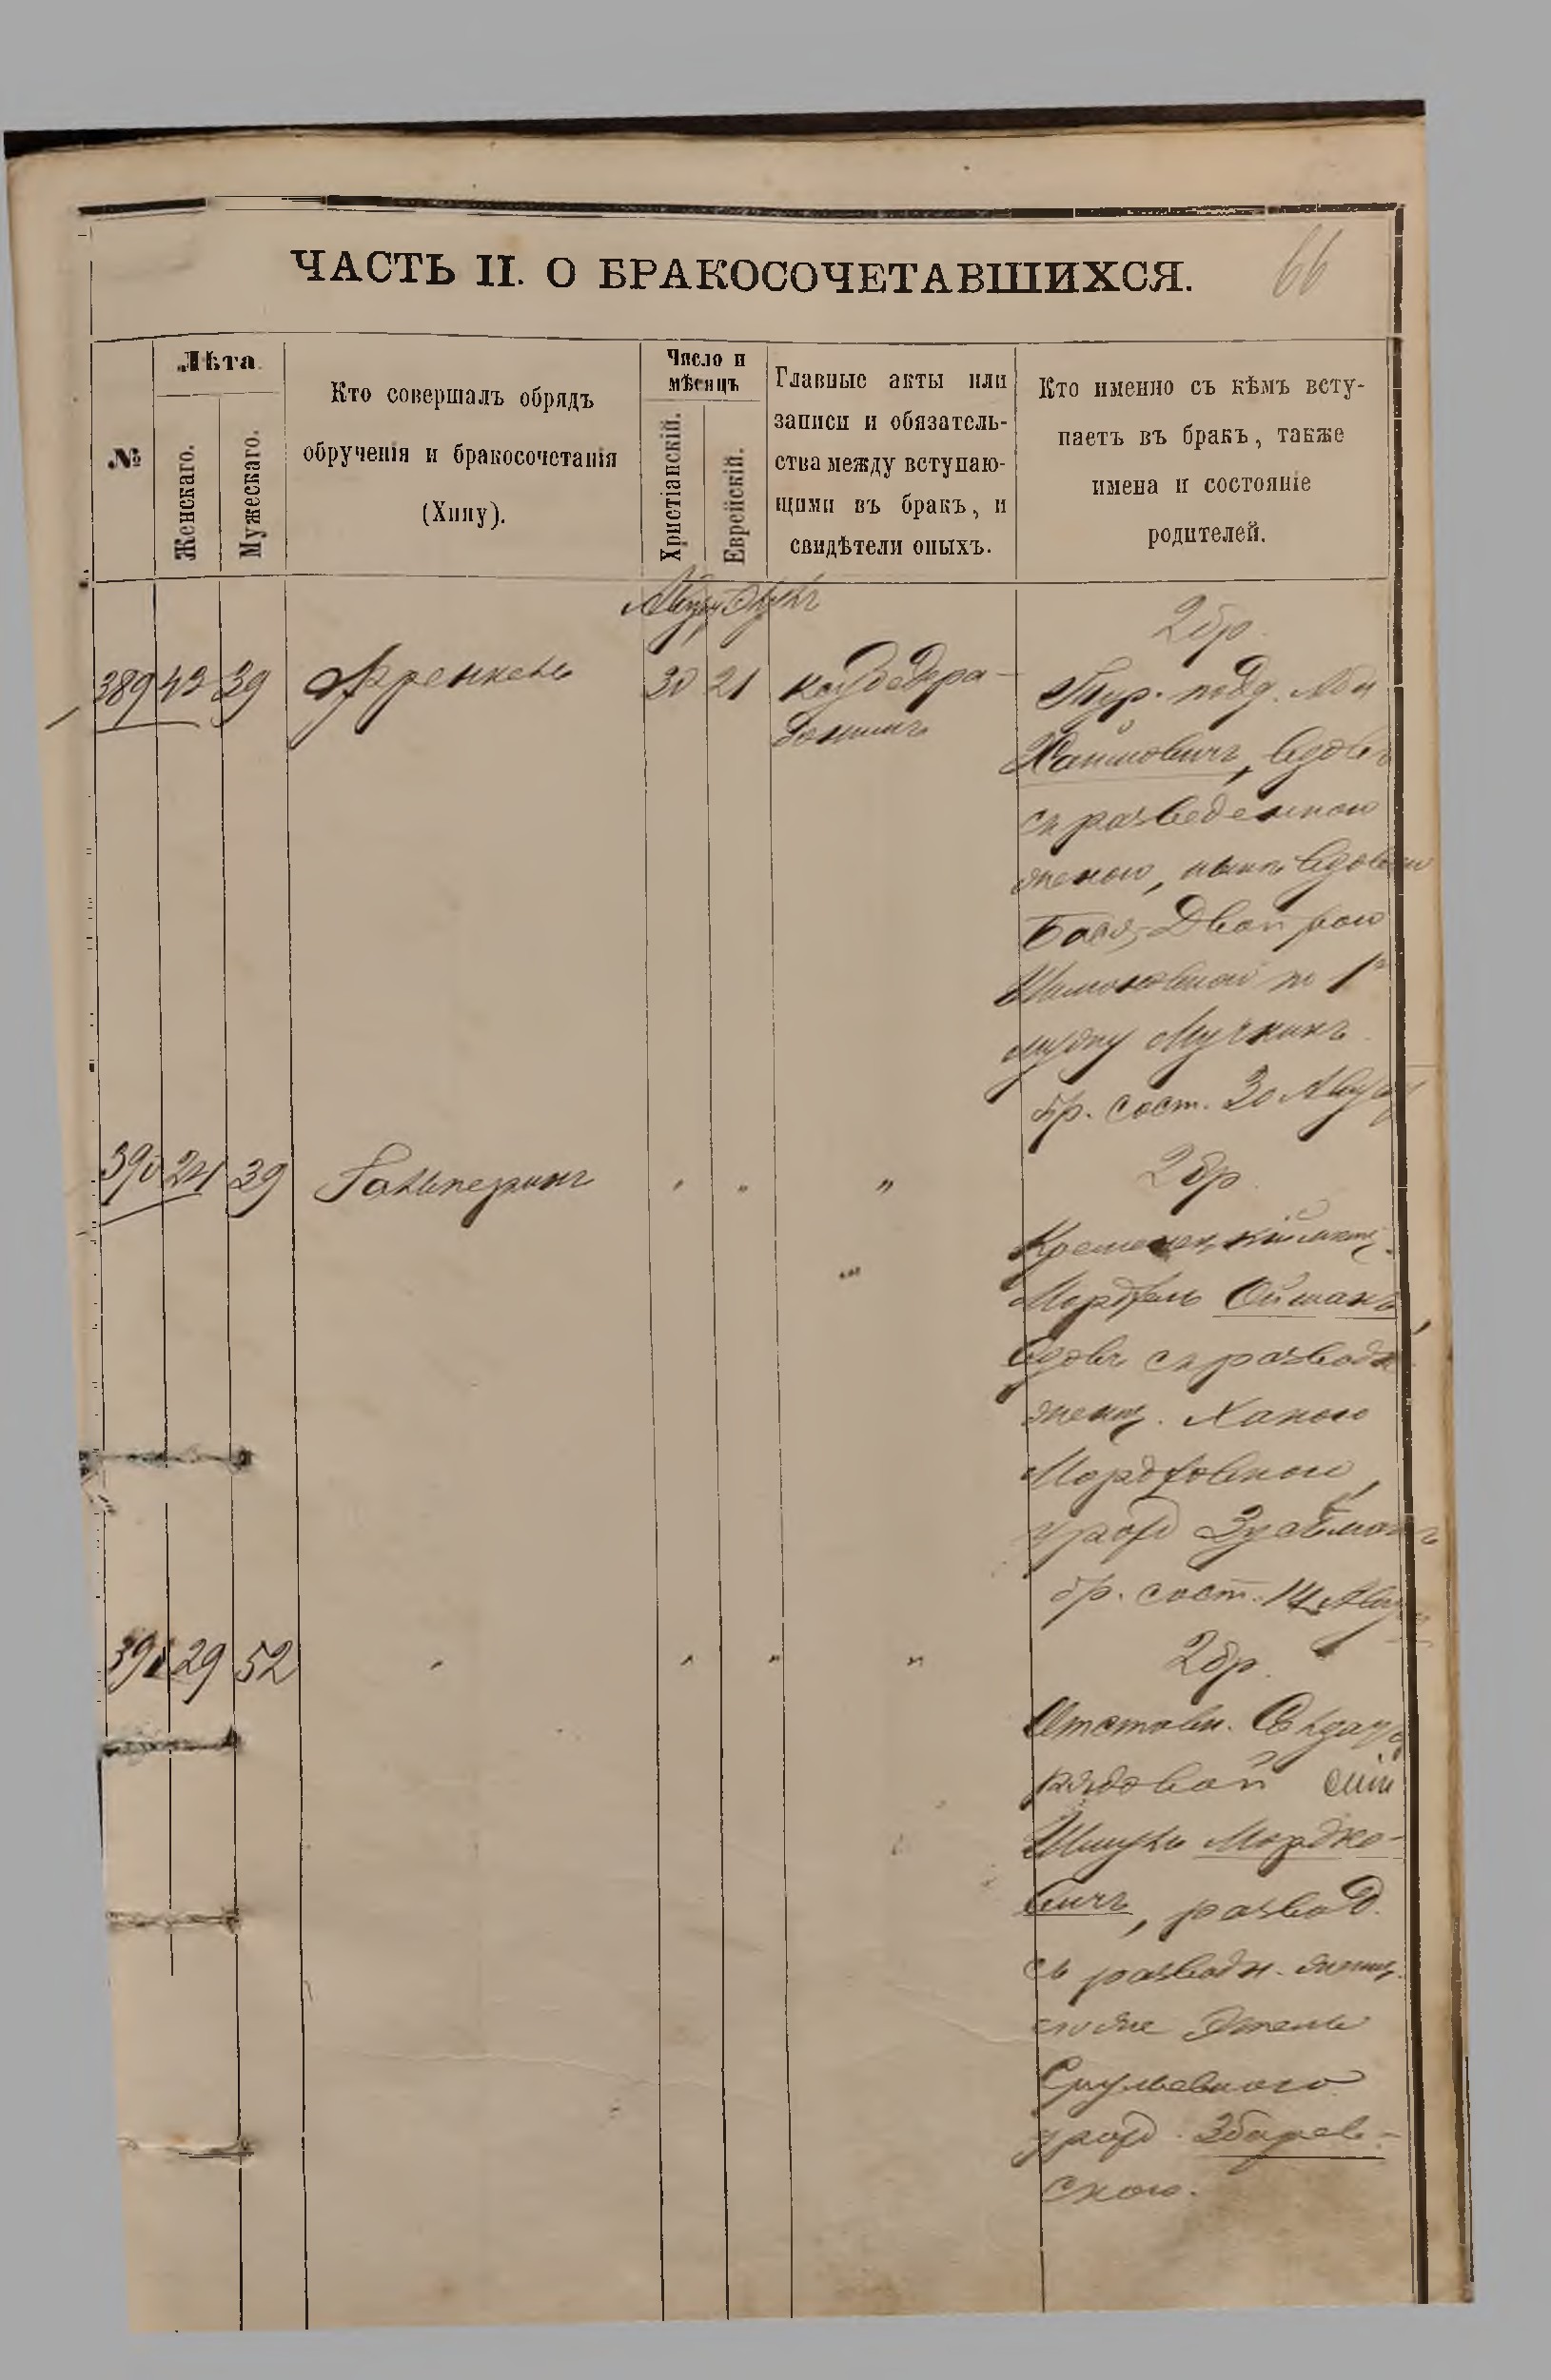 ЧАСТЬ II. О БРАКОСОЧЕТАВШИХСЯ.
66
№
Лѣта
Женскаго.
Мужескаго.
Кто совершалъ обрядъ
обрученія и бракосочетанія
(Хипу).
Число и
мѣсяцъ
Христіанскій.
Еврейскій.
Главные акты или
записи и обязатель-
ства между вступаю-
щими въ бракъ, и
свидѣтели оныхъ.
Кто именно съ кѣмъ всту-
паетъ въ бракъ, также
имена и состояніе
родителей.
2 бр.
389 42 39 Френкель 30 21
Тур. подд.
Хаимовичъ, вдовъ
съ разведенною
женою, нынѣ вдовою
Бася-Двойрою
по 1му
мужу Мучникъ
бр. сост. 30 Августа
390 24 39 Гальперинъ " " "
2 бр.
Кременецкій мѣщ.
Мордхель Ойшанъ,
вдовъ съ разводн.
женщ. Ханою
Мордховною,
урожд Зусьманъ
бр. сост. 14 Авгу
391 29 52 " " " "
2 бр.
Отставн.
рядовой
Шмуль Мордко-
вичъ, развод.
съ разводн. женщ.
Этель
Срулевною
урожд. Збарев-
скою.